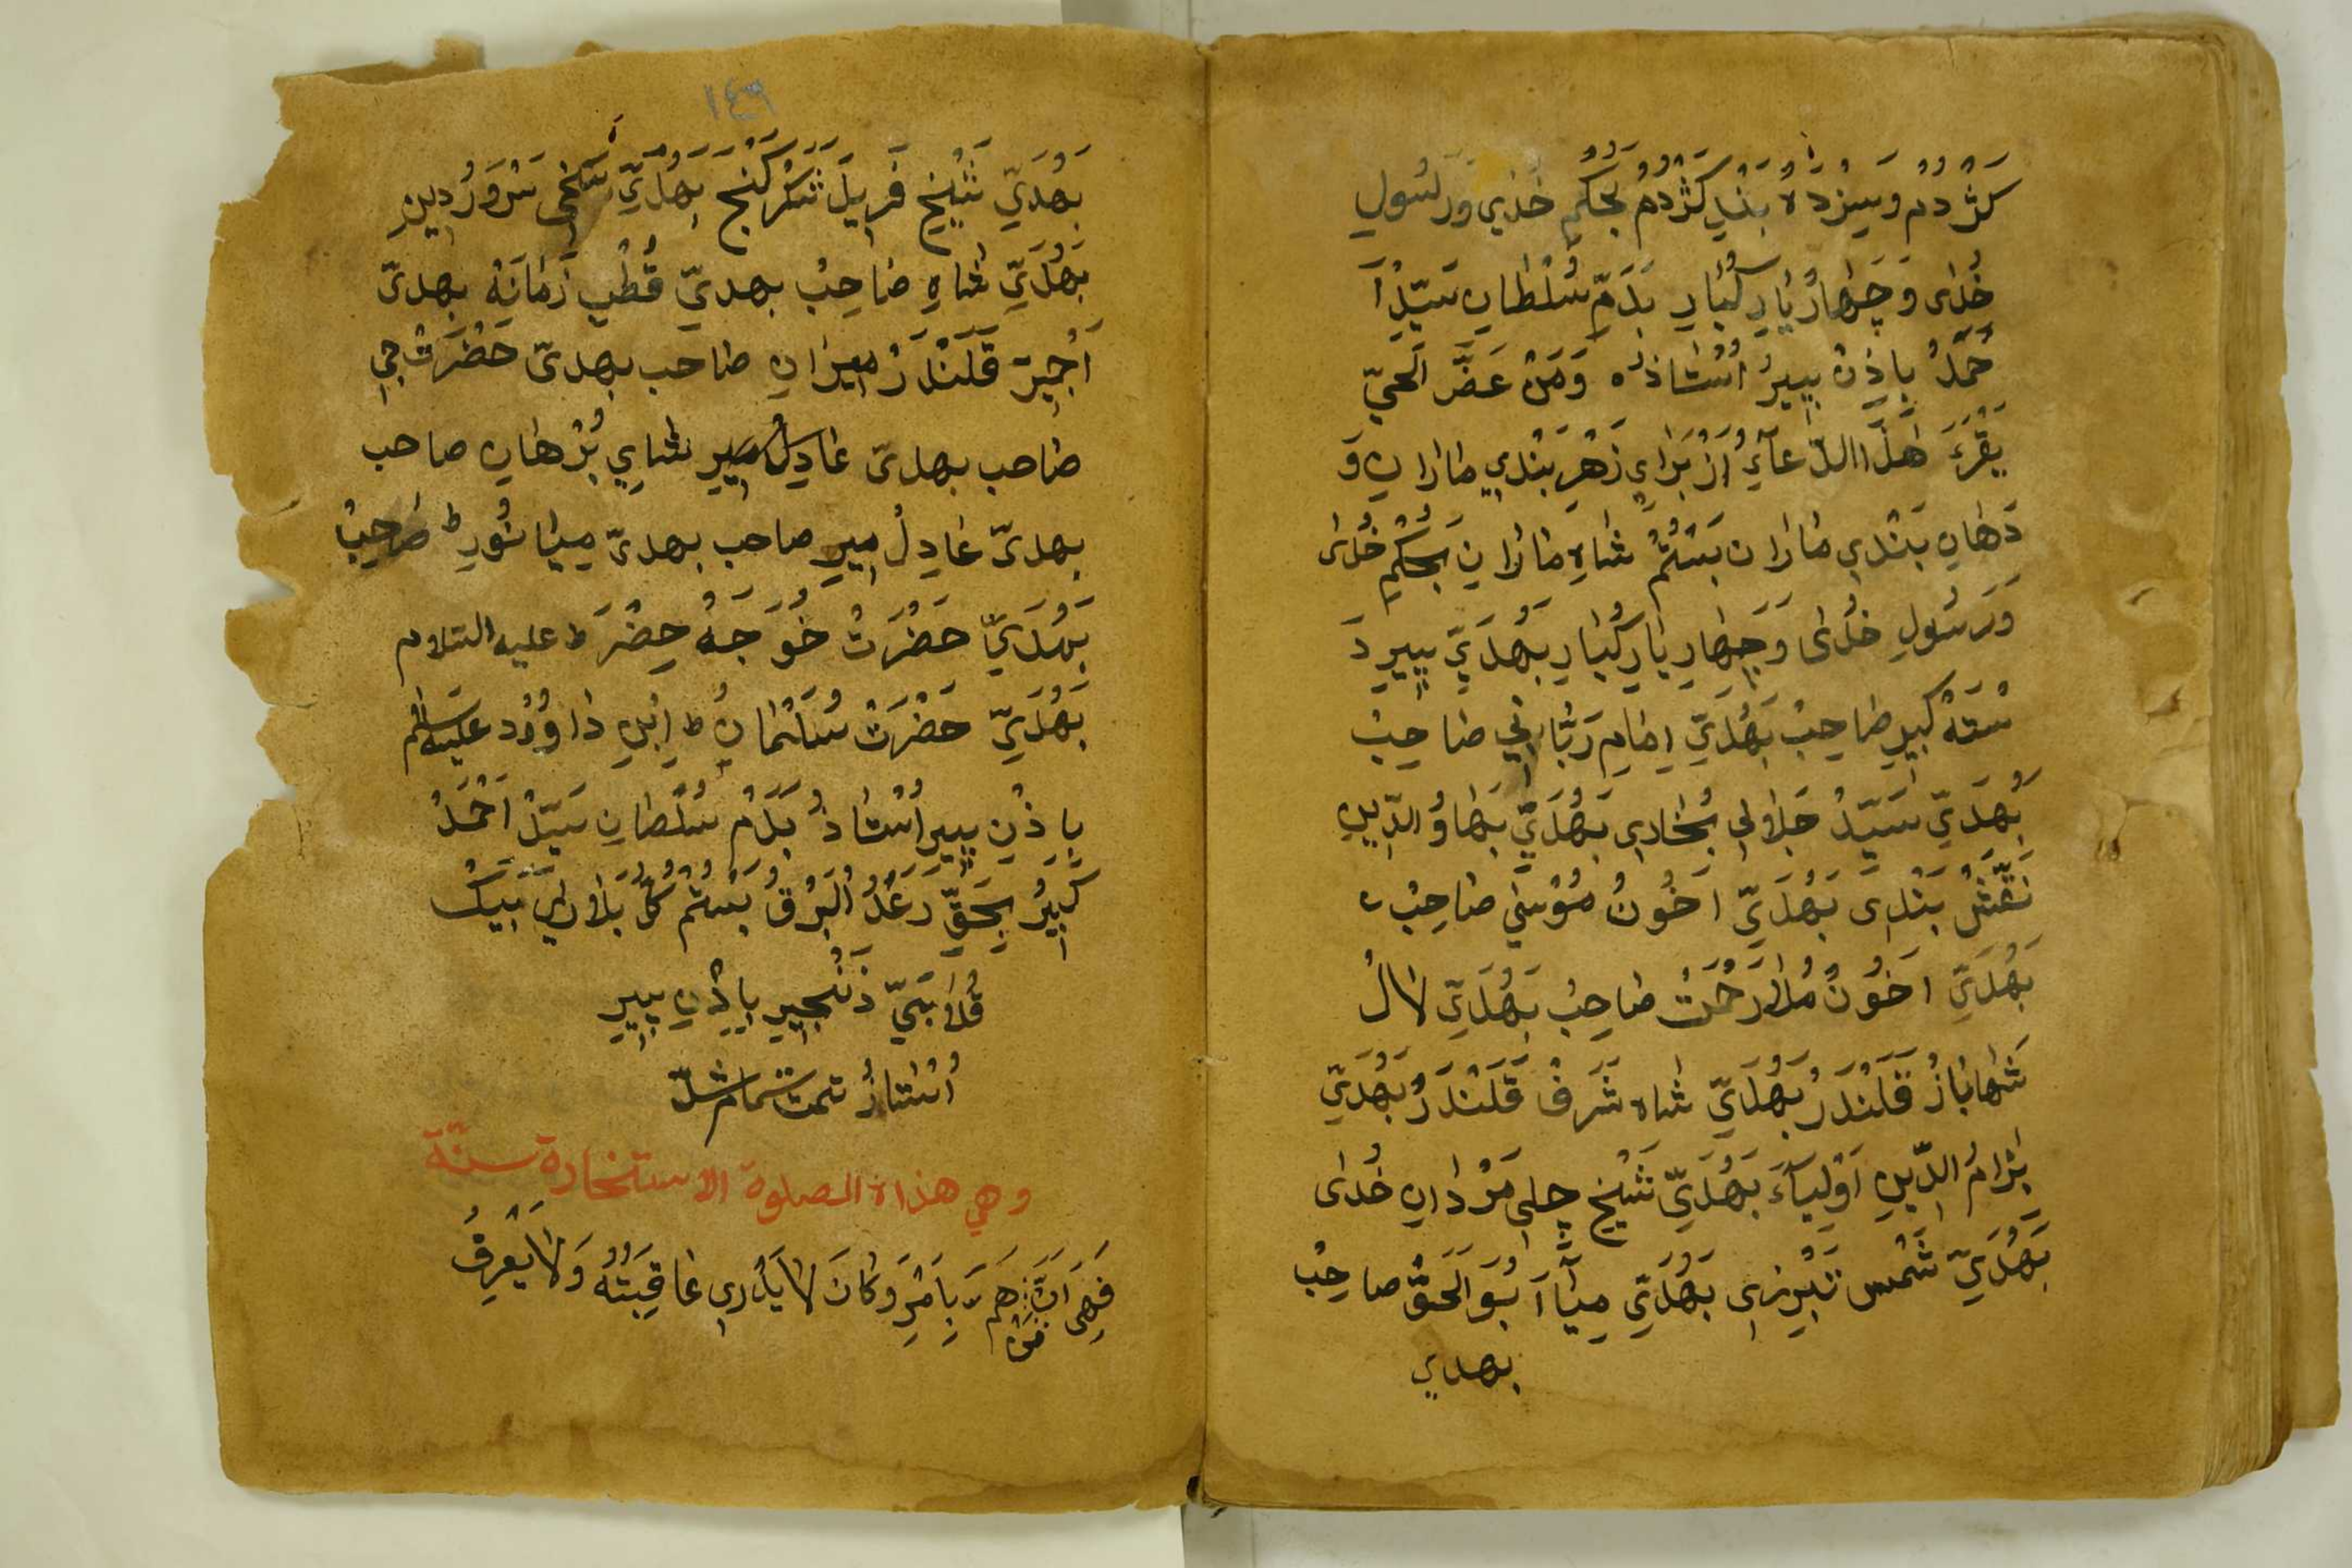 كَژْدُمْ وَسِيزْدَهْ بَنْدِ كَژْدُمْ بَحُكْمِ خُدَيِ وَرَسُولِ
خُدَاى وَچَهَارْ يَارِ كُبَارِ بَدَمِّ سُلْطَانِ سَيِّدْ اَ
حْمَدْ بِاِذِنْ پِيرُ اُسْتَاذْ ہ وَمَنْ عَضَّ الْحَيّ
يَقْرَءَ هَذَا الدّعَآءِ اَزْ بَرَايِ زَهْرِ بَنْدِيِ مَارَانِ وَ
دَهَانِ بَنْدِي مَارَان بَسْتُمْ شَاهِ مَارَانْ بَحُكْمِ خُدَاى
وَرَسُولِ خُدَاى وَچِهَارِ يَارِ كُبَارِ بَهُدَيِّ پِيرِ دَ
سْتَهْ كِيرِ صَاحِبْ بَهُدَيِّ اِمَامِ رَبَّانِي صَاحِبْ
بَهُدَيّ سَيِّدْ جَلَالِي بُخَارِي بَهُدَيِّ بَهَاوُ الدِّينِ
نَقْشْ بَنْدِى بَهُدَيِّ اَخُونْ مُوْسَي صَاحِبْ
بَهُدَيِّ اَخُونْ مُلَّا رَحْمَتْ صَاحِبْ بَهُدَيِّ لَالْ
شَهَابَازْ قَلَنْدَرْ بَهُدَيِّ شَاه شَرَفْ قَلَنْدَرْ بَهُدَيّ
نِزَامُ الدِّينِ اَوْلِيَآءَ بَهُدَيِّ شَيْخ جلى مَرْدَانِ خُدَاى
بَهُدَيِّ شَمْس تَبْرِيزِى بَهُدَيِّ مِيَآ اَبُوَ الْحَقّْ صاحِبْ
بهدي
١٤٩
بَهُدَيِّ شَيْخ فَرِيدَ شَكَرْكَنْج بَهُدَيِّ سَخِى سَرْوَرُ دِينِ
بَهُدَيِّ شَاهِ صَاحِبْ بهديّ قُطْبِ زَمَانَهْ بهدىّ
اَجِيرَ قَلَنْدَرْ مِيرَانِ صَاحب بهدىّ حَضْرَتْ جِي
صَاحب بهدىّ عَادِلْ مِيرِ شَايِ بُرْهَانِ صاحب
بهدىّ عَادِلْ مِيرِ صاحب بهدىّ مِيَا نُورِ صَاحِبْ
بَهُدَيِّ حَضْرَتْ خُوَجَهْ خِضْرَ عليه السّلام
بَهُدَيِّ حَضْرَتْ سُلَيْمَانْ اِبْنِ دَاوُوْد عليه السلام
بِاِذْنِ پِيرِ اُسْتَاذْ بَدَمْ سُلْطَانِ سَيِّدْ اَحْمَدْ
كَبِيرْ بِحَقِّ رَعْدُ الْبَرْقُ بَسْتُمْ
زَنْجِيرِ بِاِذْنِ پِيرِ
اُسْتَاذْ تمت تمام شدّ
وهي هذاة الصلوة الاستخارة سنّة
وَكَانَ لَا يَدْرِي عَاقِبَتُهُ وَلَا يَعْرِفُ